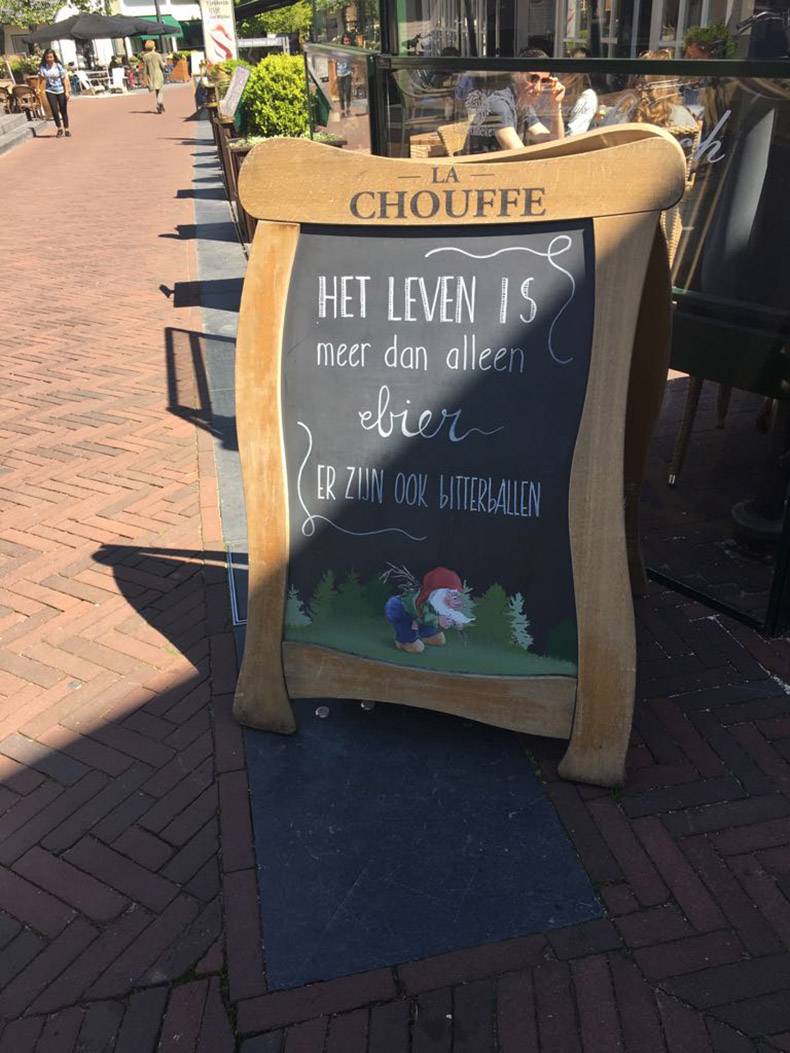 — LA —
CHOUFFE
HET LEVEN IS
meer dan alleen
bier
ER ZIJN OOK bITTERbALLEN